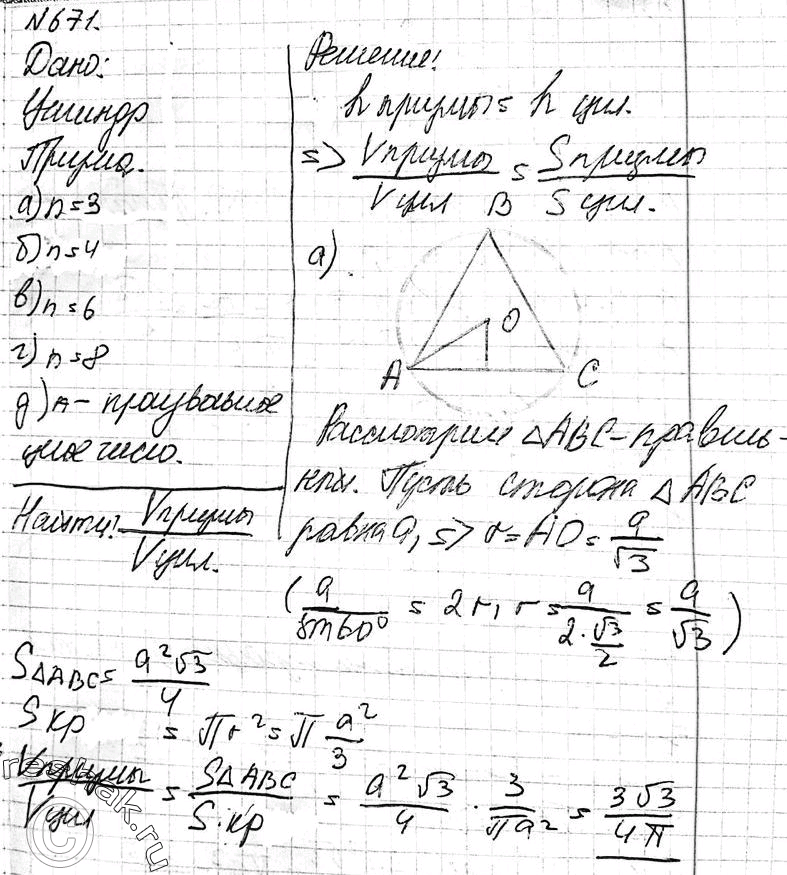 N671.
Дано:
Цилиндр
Призма.
а) n=3
б) n=4
в) n=6
г) n=8
д) n- произвольное
целое число.
Найти: Vпризмы/Vцил.
Решение:
h призмы = h цил.
=> Vпризмы/Vцил = Sпризмы/Sцил.
а)
B
O
A C
Рассмотрим △ABC-правиль-
ный. Пусть сторона △ABC
равна a, => r=AO=a/√3
(a/sin60° = 2r, r=a/(2·√3/2) = a/√3)
S△ABC = a²√3/4
Sкр = πr² = π a²/3
Vпризмы/Vцил = S△ABC/Sкр = a²√3/4 · 3/πa² = 3√3/4π
reshak.ru
©